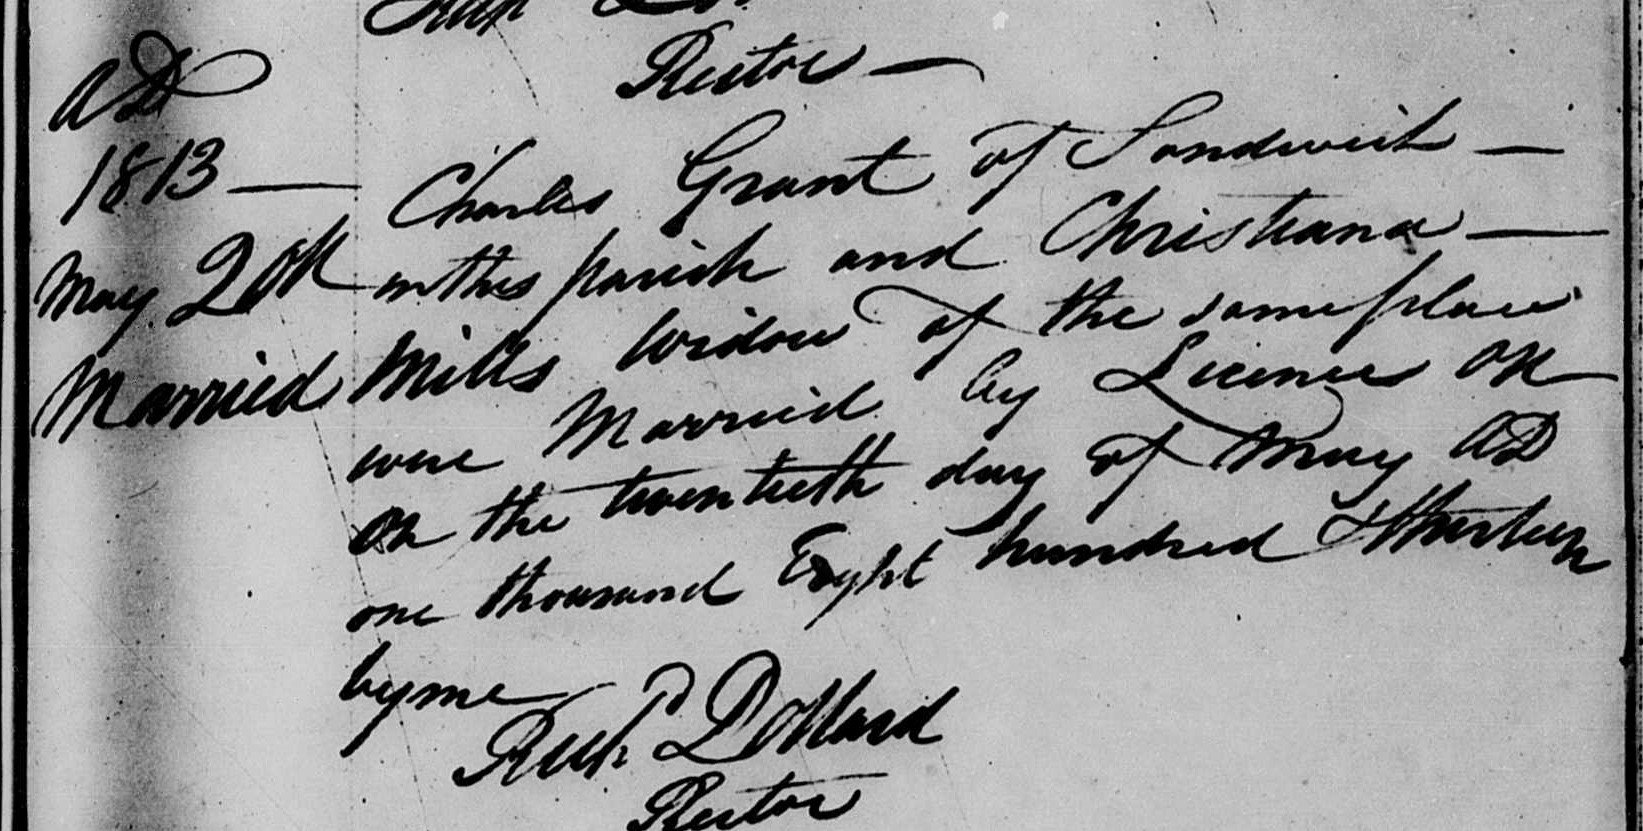 Rector —
AD
1813 — Charles Grant of Sandwich —
May 20th in this parish and Christiana —
Married Mills Widow of the same place
were Married by Licence on
on the twentieth day of May AD
one thousand Eight hundred & thirteen
by me
Richd Pollard
Rector